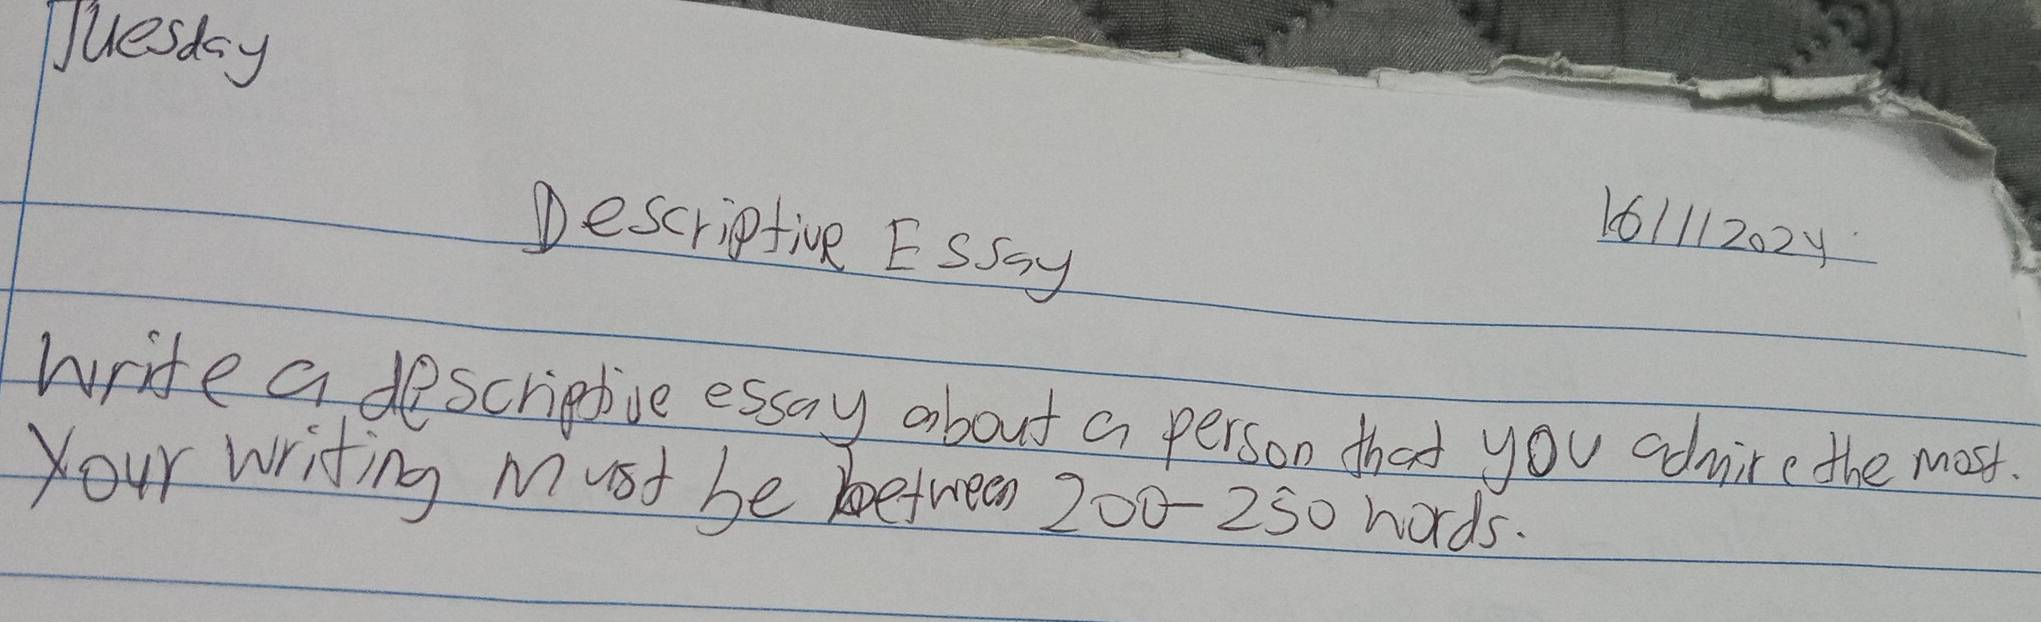 Tuesday
Descriptive Essay
16/1/2024
Write a descriptive essay about a person that you admire the most.
Your writing must be between 200-250 words.